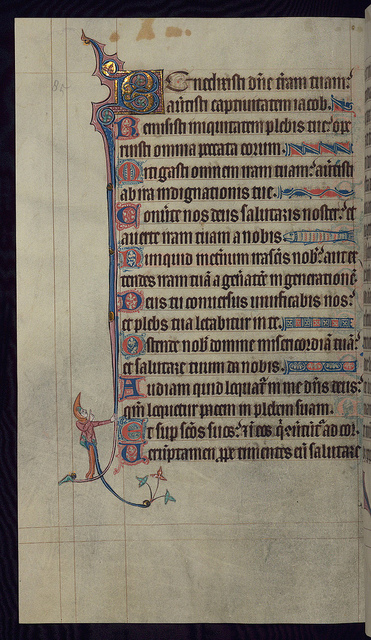 Benedixisti dñe tram tuam:
auertisti captiuitatem iacob.
Remisisti iniquitatem plebis tue: ope
ruisti omnia peccata eorum.
Mitigasti omnem iram tuam: auertisti
ab ira indignationis tue.
Conuerte nos deus salutaris noster: et
auerte iram tuam a nobis.
Numquid in eternum irasceris nob: aut ex
tendes iram tuā a generatione in generationē.
Deus tu conuersus uiuificabis nos:
et plebs tua letabitur in te.
Ostende nob domine misericordiā tuā:
et salutare tuum da nobis.
Audiam quid loquat in me dñs deus:
qm̄ loquetur pacem in plebem suam.
Et sup scōs suos: et in eos q̄ conuertūt ad cor.
Veruptamen ppe timentes eū salutare